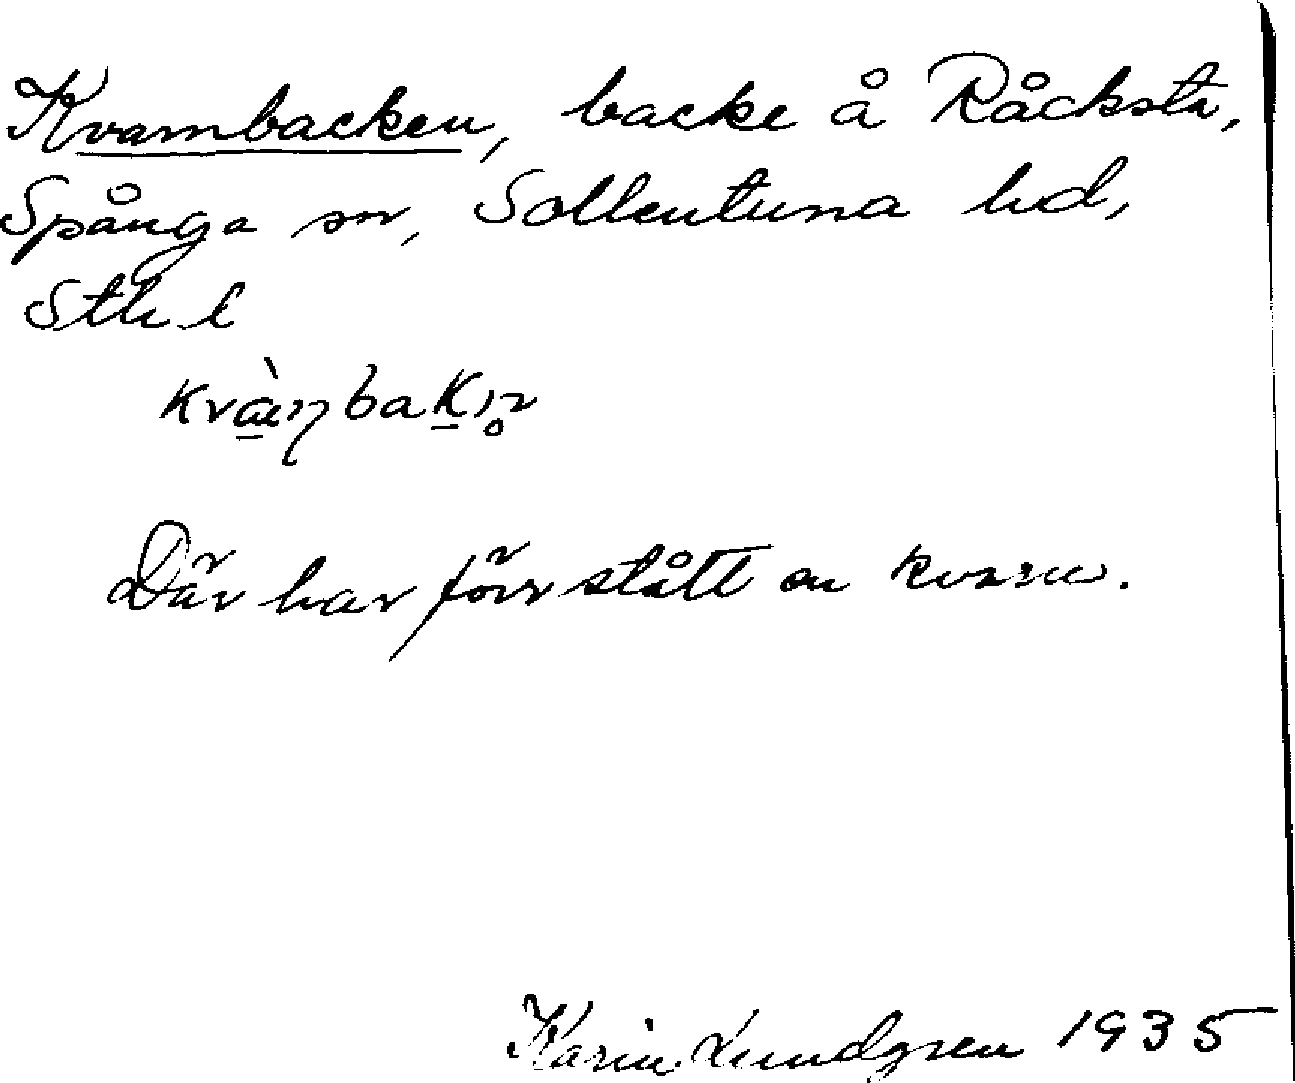 Kvarnbacken, backe å Råcksta,
Spånga sn, Sollentuna hd,
Sthl l
Där har förr stått en kvarn.
Karin Lundgren 1935